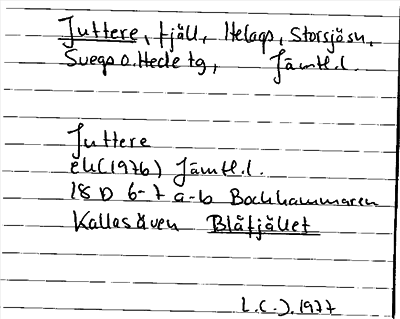 Juttere, fjäll, Helags, Storsjösn,
Svegs o. Hede tg, Jämtl.l.
Juttere
ek (1976) Jämtl.l.
18 D 6-7 a-b Bockhammaren
Kallas även Blåfjället
L.C.J. 1977